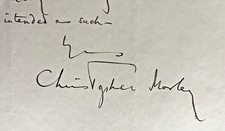 intended as such—
Christopher Morley